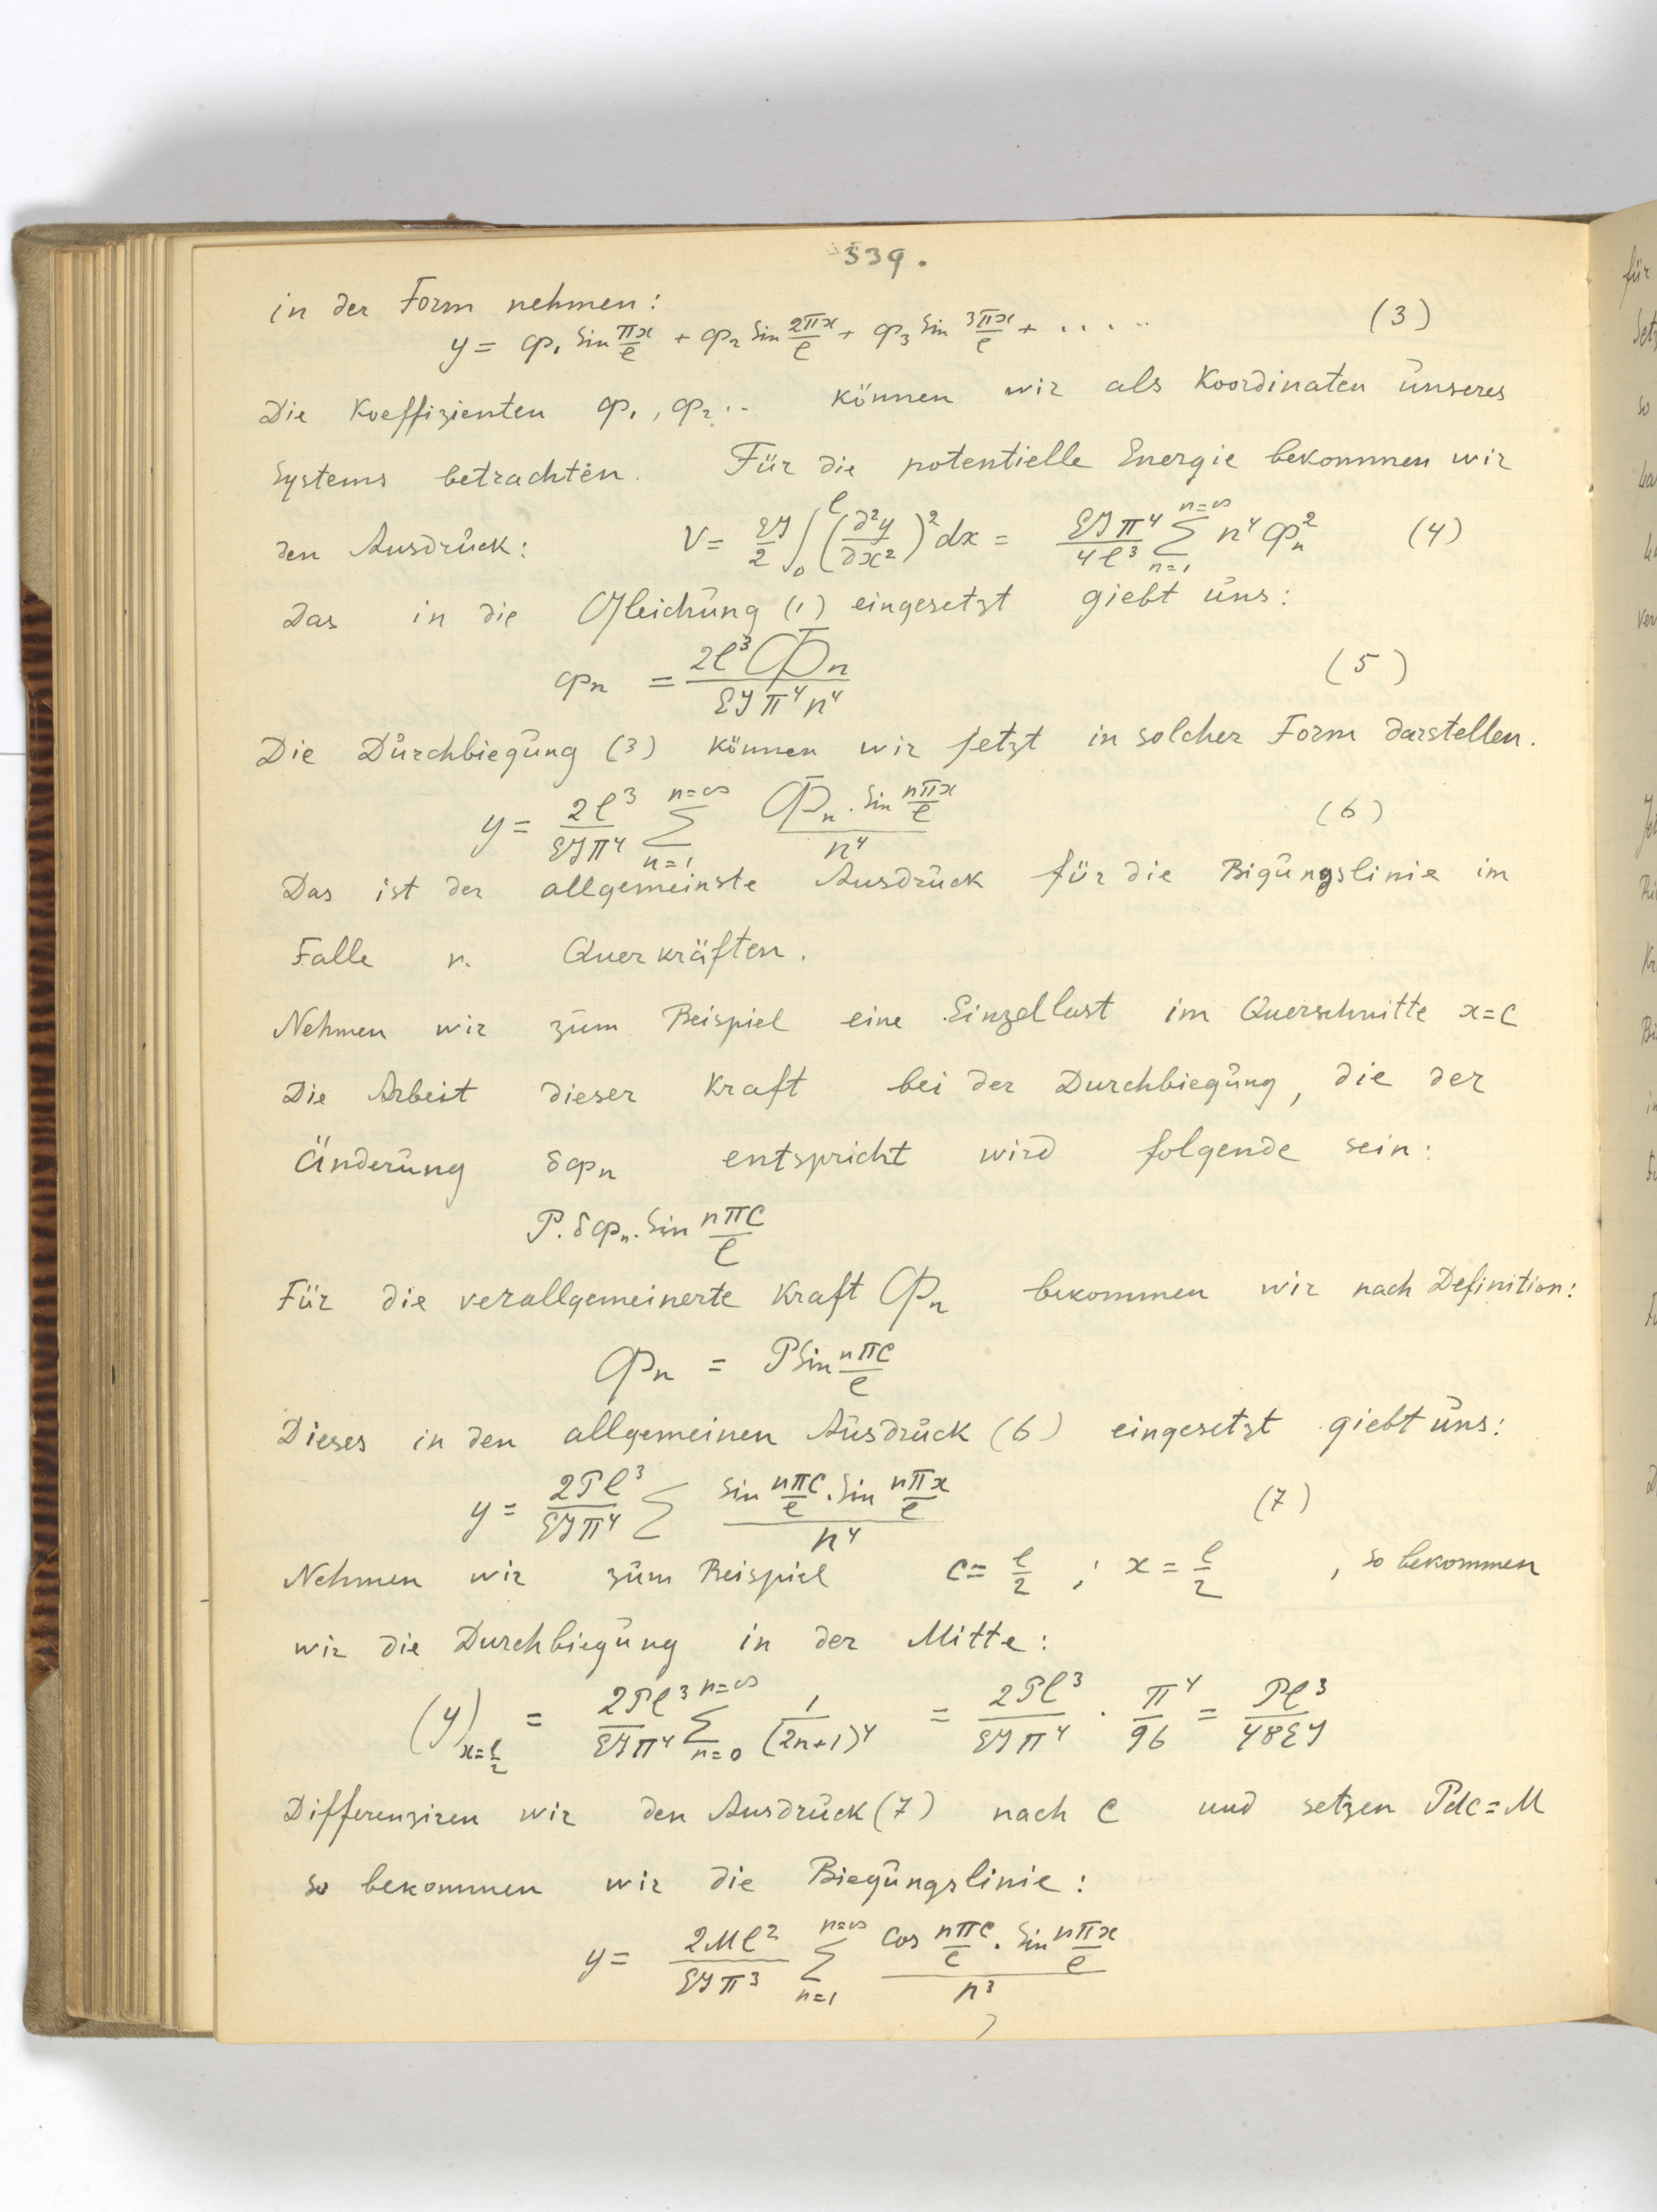 339.
in der Form nehmen:
y = φ₁ sin πx/l + φ₂ sin 2πx/l + φ₃ sin 3πx/l + ..... (3)
Die Koeffizienten φ₁, φ₂ .. können wir als Koordinaten unseres
Systems betrachten. Für die potentielle Energie bekommen wir
den Ausdruck: V = EJ/2 ∫₀ˡ (∂²y/∂x²)² dx = EJπ⁴/4l³ ∑ₙ₌₁ⁿ⁼∞ n⁴ φₙ² (4)
Das in die Gleichung (1) eingesetzt giebt uns:
φₙ = 2l³Φₙ/EJπ⁴n⁴ (5)
Die Durchbiegung (3) können wir jetzt in solcher Form darstellen.
y = 2l³/EJπ⁴ ∑ₙ₌₁ⁿ⁼∞ Φₙ · sin nπx/l / n⁴ (6)
Das ist der allgemeinste Ausdruck für die Bigungslinie im
Falle n. Querkräften.
Nehmen wir zum Beispiel eine Einzellast im Querschnitte x=c
Die Arbeit dieser Kraft bei der Durchbiegung, die der
Änderung δφₙ entspricht wird folgende sein:
P. δφₙ. sin nπc/l
Für die verallgemeinerte Kraft Φₙ bekommen wir nach Definition:
Φₙ = P sin nπc/l
Dieses in den allgemeinen Ausdruck (6) eingesetzt giebt uns:
y = 2Pl³/EJπ⁴ ∑ sin nπc/l · sin nπx/l / n⁴ (7)
Nehmen wir zum Beispiel c = l/2 ; x = l/2 , so bekommen
wir die Durchbiegung in der Mitte:
(y)ₓ₌l/2 = 2Pl³/EJπ⁴ ∑ₙ₌₀ⁿ⁼∞ 1/(2n+1)⁴ = 2Pl³/EJπ⁴ · π⁴/96 = Pl³/48EJ
Differenziren wir den Ausdruck (7) nach c und setzen Pdc = M
so bekommen wir die Biegungslinie:
y = 2Ml²/EJπ³ ∑ₙ₌₁ⁿ⁼∞ cos nπc/l · sin nπx/l / n³
für
so